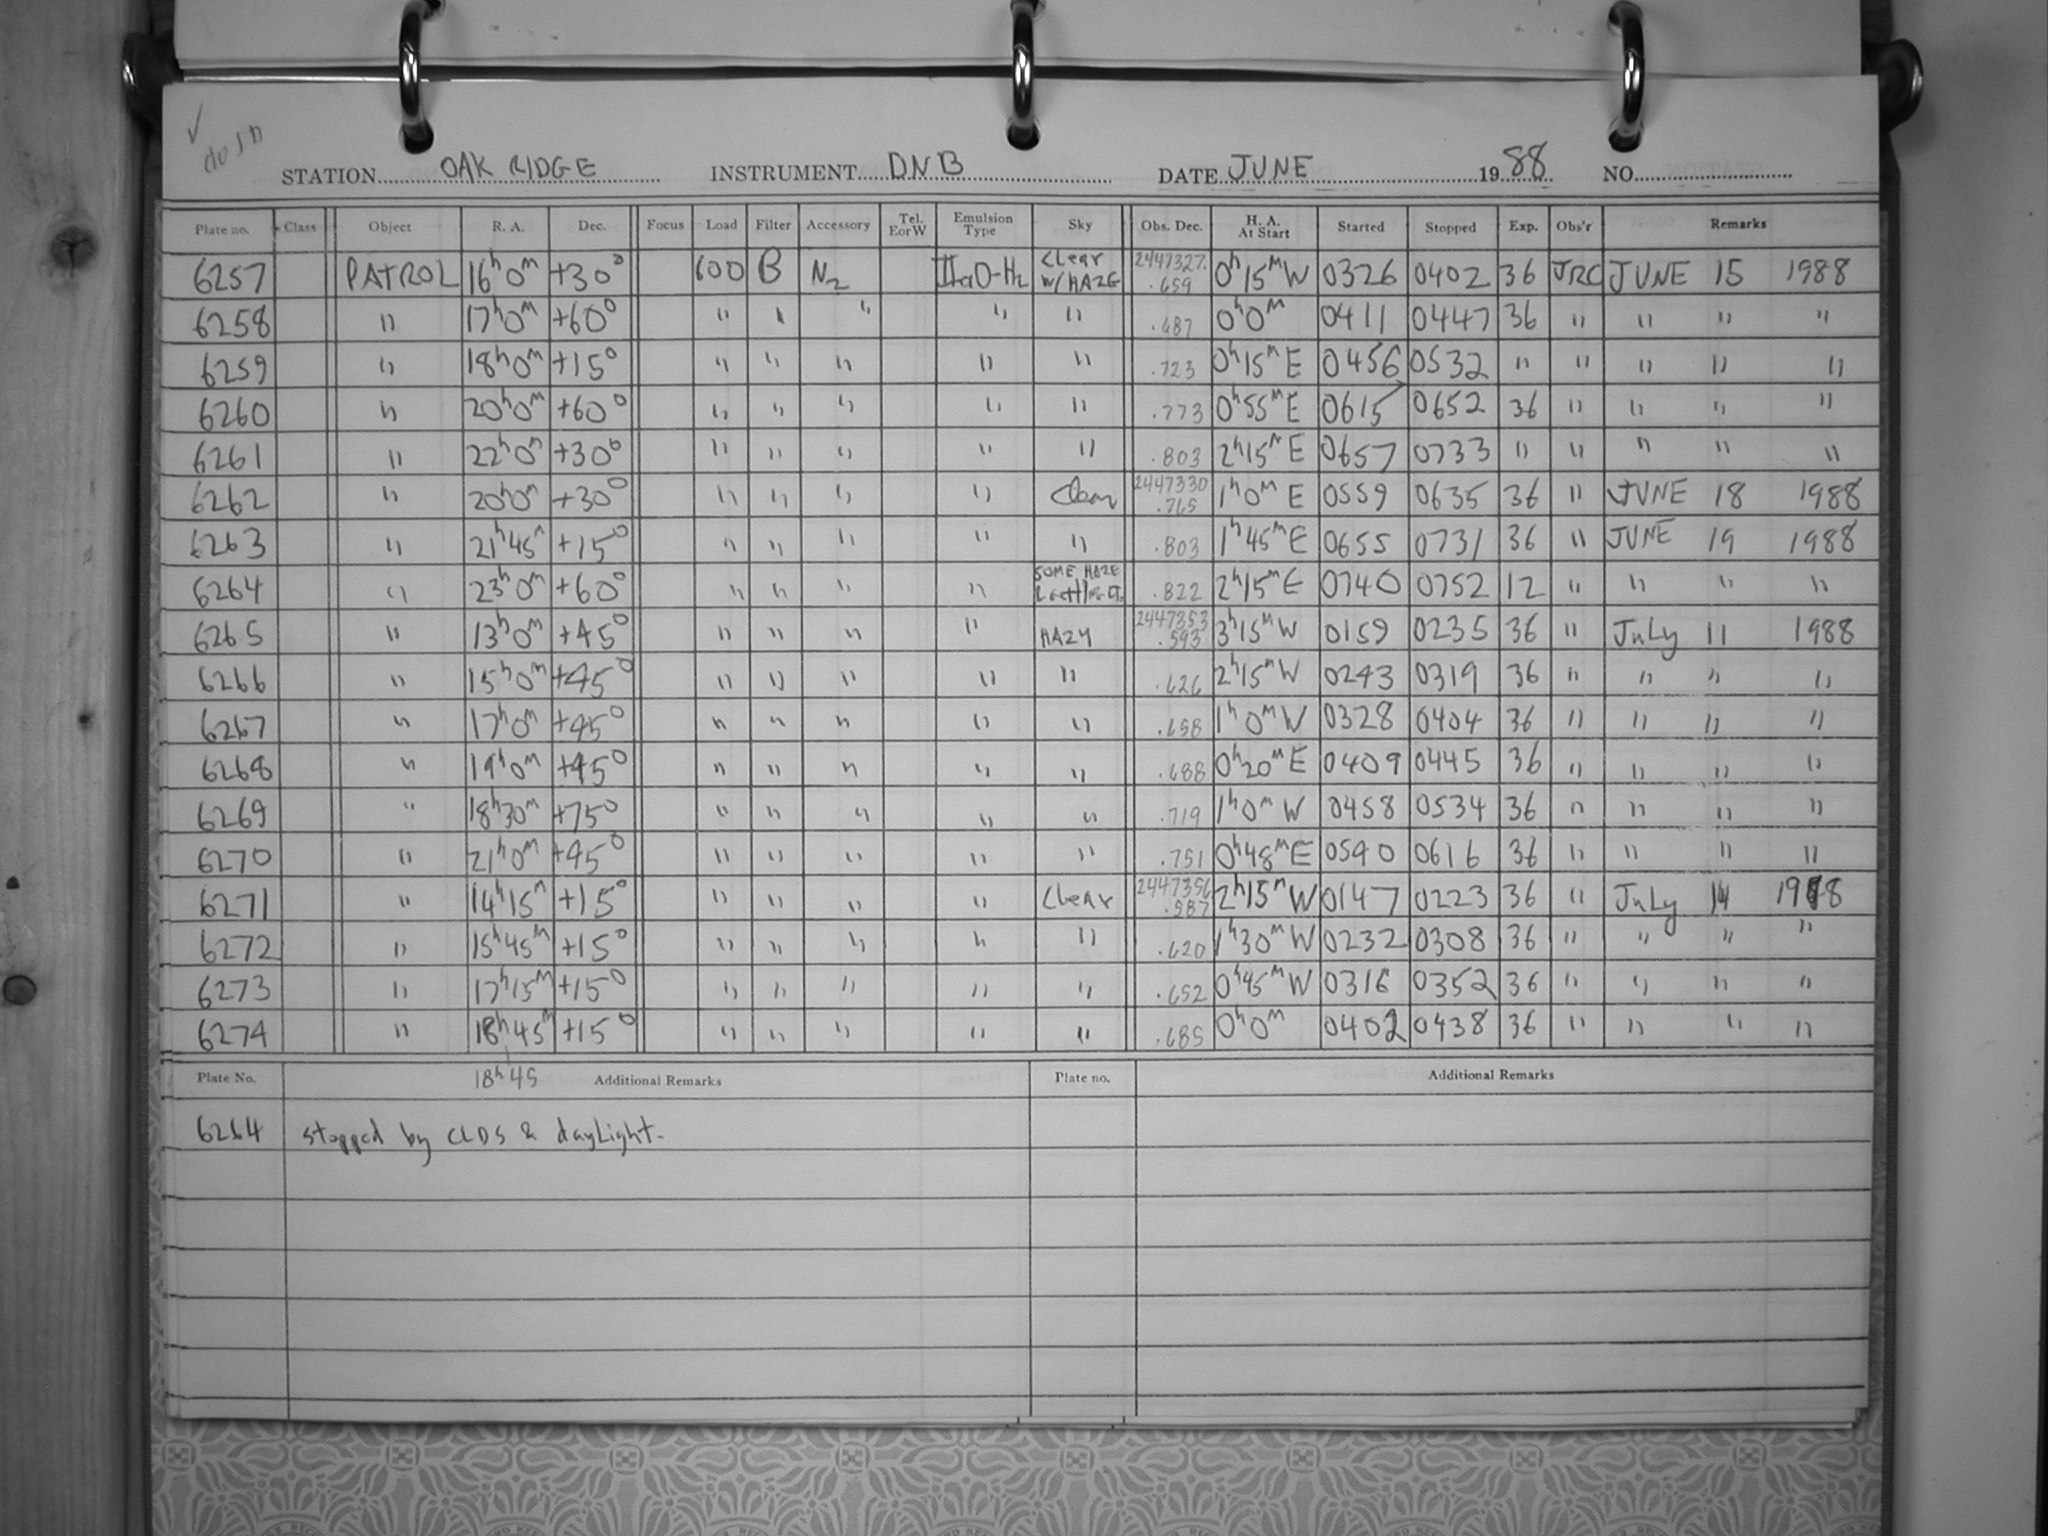 ✓
STATION OAK RIDGE INSTRUMENT DNB DATE JUNE 1988 NO.
Plate no. Class Object R. A. Dec. Focus Load Filter Accessory Tel. E or W Emulsion Type Sky Obs. Dec. H. A. At Start Started Stopped Exp. Obs'r Remarks
6257 PATROL 16h 0m +30° 600 B N2 IIaO-H2 Clear W/HAZE 2447327.659 0h15mW 0326 0402 36 JRC JUNE 15 1988
6258 " 17h0m +60° " " " " " .687 0h0m 0411 0447 36 " " " "
6259 " 18h0m +15° " " " " " .723 0h15mE 0456 0532 " " " " "
6260 " 20h0m +60° " " " " " .773 0h55mE 0615 0652 36 " " " "
6261 " 22h0m +30° " " " " " .803 2h15mE 0657 0733 " " " " "
6262 " 20h0m +30° " " " " Clear 2447330.765 1h0mE 0559 0635 36 " JUNE 18 1988
6263 " 21h45m +15° " " " " " .803 1h45mE 0655 0731 36 " JUNE 19 1988
6264 " 23h0m +60° " " " " SOME HAZE .822 2h15mE 0740 0752 12 " " " "
6265 " 13h0m +45° " " " " HAZY 2447353.593 3h15mW 0159 0235 36 " July 11 1988
6266 " 15h0m +45° " " " " " .626 2h15mW 0243 0319 36 " " " "
6267 " 17h0m +45° " " " " " .658 1h0mW 0328 0404 36 " " " "
6268 " 19h0m +45° " " " " " .688 0h20mE 0409 0445 36 " " " "
6269 " 18h30m +75° " " " " " .719 1h0mW 0458 0534 36 " " " "
6270 " 21h0m +45° " " " " " .751 0h48mE 0540 0616 36 " " " "
6271 " 14h15m +15° " " " " Clear 2447356.587 2h15mW 0147 0223 36 " July 14 1988
6272 " 15h45m +15° " " " " " .620 1h30mW 0232 0308 36 " " " "
6273 " 17h15m +15° " " " " " .652 0h45mW 0316 0352 36 " " " "
6274 " 18h45m +15° " " " " " .685 0h0m 0402 0438 36 " " " "
Plate No. 18h45 Additional Remarks Plate no. Additional Remarks
6264 stopped by CLDS & dayLight.